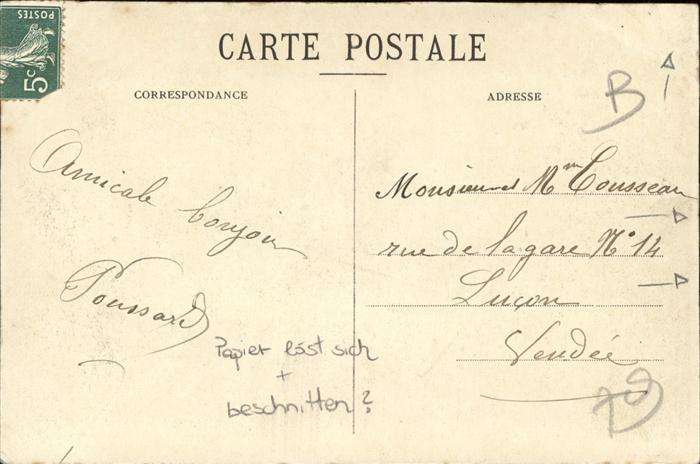 POSTES
5c
CARTE POSTALE
CORRESPONDANCE
ADRESSE
B
Amicale bonjour
Poussard
Monsieur et Mm Cousseau
rue de la gare N° 14
Luçon
Vendée
Papier löst sich
+
beschnitten?